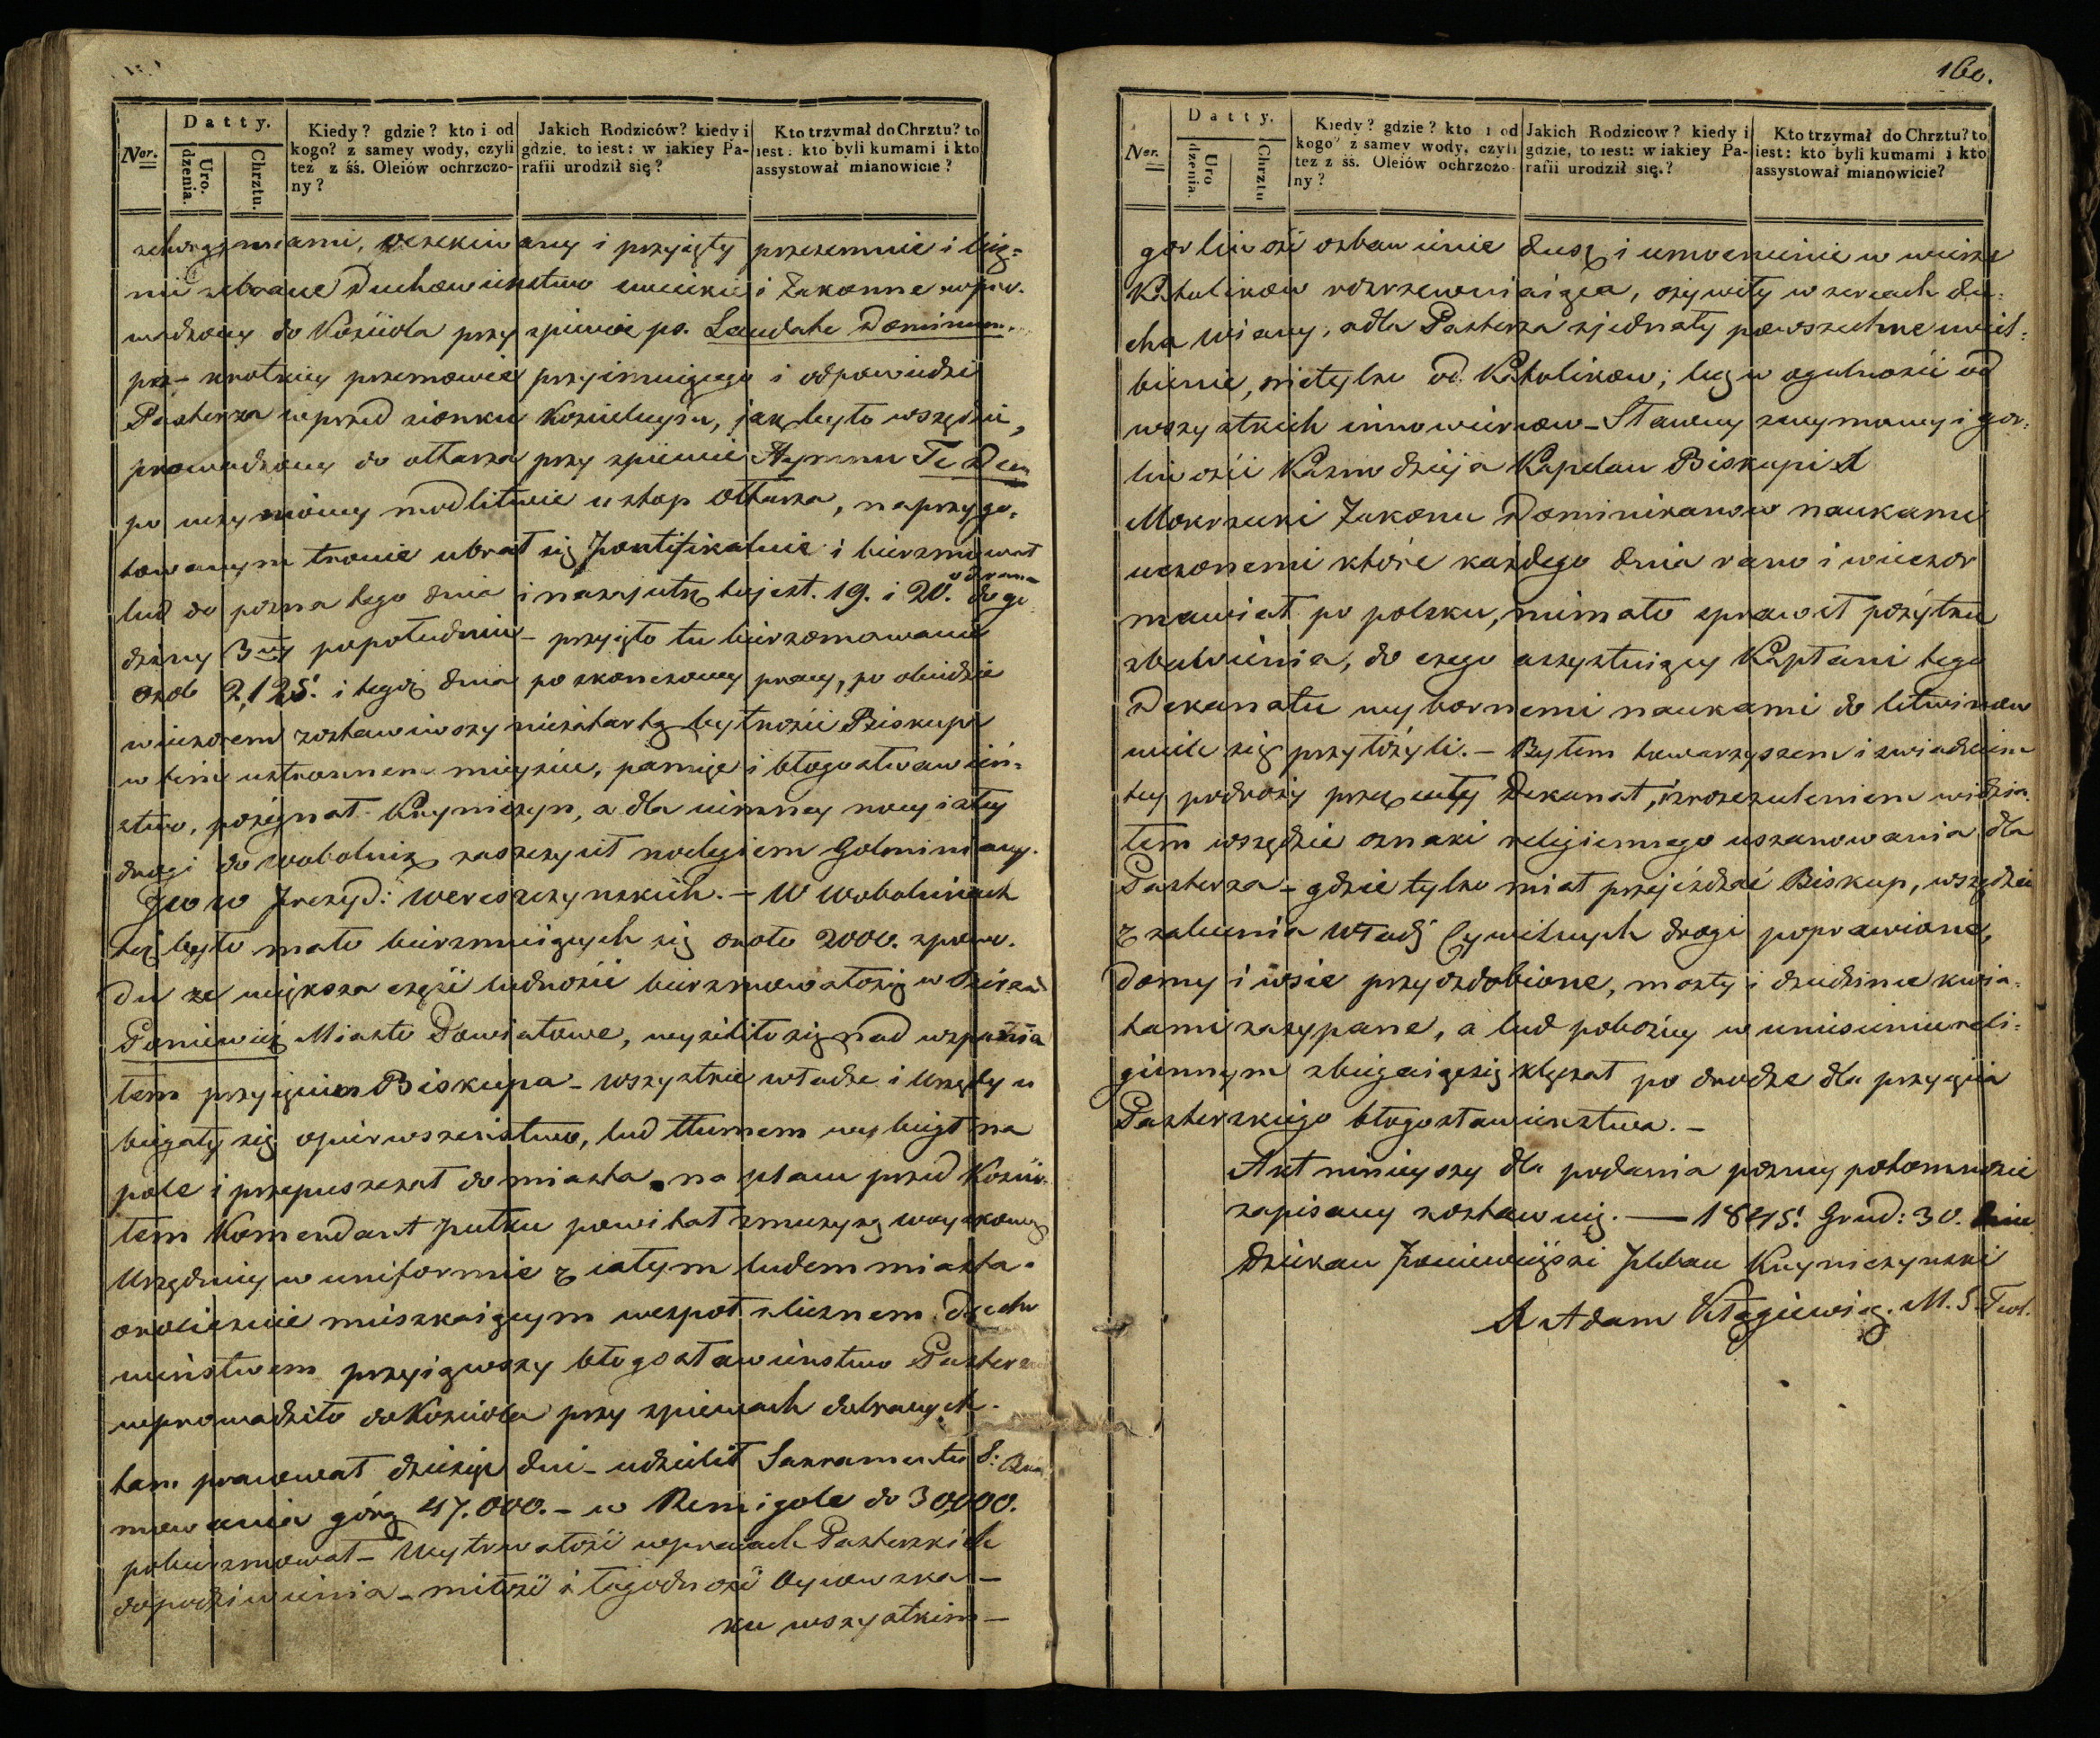 Nor.
Datty.
Urodzenia.
Chrztu.
Kiedy? gdzie? kto i od kogo? z samey wody, czyli też z śś. Oleiów ochrzczony?
Jakich Rodziców? kiedy i gdzie, to iest: w iakiey Parafii urodził się?
Kto trzymał do Chrztu? to iest: kto byli kumami i kto assystował mianowicie?
oczekiwany i przyięty przezemnie i licz=
nie zebrane Duchowieństwo świeckie i Zakonne wpro-
wadzony do Kościoła przy śpiewie ps. Laudate Dominum.
po krotkiey przemowie przyimuiącego i odpowiedzi
Pasterza wprzed sionku Kościelnym, jak było wszędzie,
prowadzony do ołtarza przy śpiewie Hymnu Te Deum
po uczynioney modlitwie u stop Ołtarza, na przygo-
towanym tronie ubrał się Pontifikalnie i bierzmował
lud do pozna tego dnia i nazajutrz to jest. 19. i 20. od rana do go
dziny 3ey popołudniu - przyięto tu bierzmowanie
osob 2,125. i tegoż dnia po skończoney pracy, po obiedzie
wieczorem zostawiwszy niezatartą bytności Biskupa
w tém ustronnem mieyscu, pamięć i błogosławień-
stwo, pożegnał Kryniczyn, a dla ciemney nocy i złey
drogi do Wobolnik zaszczycił noclegiem Golminiany.
JWW Prezyd: Wereszczynskich. - W Wobolnikach
też było mało bierzmuiących się około 2000. z powo-
du że większa część ludności bierzmowało się w
Poniewież Miasto Powiatowe, wysiliło się nad wspania
łem przyięciem Biskupa - wszystkie władze i Urzędy u
biegały się o pierwszeństwo, lud tłumem wybiegł na
pole i przepuszczał do miasta. na placu przed Kościo
łem Komendant pułku powitał z muzyką woyskową
Urzędnicy w uniformie z całym ludem miasta.
okolicznie mieszkaiącym wespoł z licznem Ducho
wieństwem przyiąwszy błogosławieństwo Pasterza
wprowadziło do Kościoła przy śpiewach dobranych.
tam pracował dziesięć dni - udzielił Sakramentu S: Bierz
mowania górą 47.000. - w Remigole do 30,000.
pobierzmował - Wytrwałość w pracach Pasterskich
do podziwienia - miłość i łagodność Oycowska -
ku wszystkim -
160.
Nor.
Datty.
Urodzenia.
Chrztu
Kiedy? gdzie? kto i od kogo? z samey wody, czyli też z śś. Oleiów ochrzczony?
Jakich Rodziców? kiedy i gdzie, to iest: w iakiey Parafii urodził się.?
Kto trzymał do Chrztu? to iest: kto byli kumami i kto assystował mianowicie?
gorliwość o zbawienie dusz i umocnienie w wierze
Katolikow rozrzewniaiąca, ożywiły w sercach du-
cha wiary, a dla Pasterza zjednały powszechne uwiel-
bienie, nietylko od Katolikow; lecz w ogulności od
wszystkich innowiercow - Sławny z wymowy i gor-
liwości Kaznodzieja Kapelan Biskupi X
Mokrzecki Zakonu Dominikanow naukami
uczonemi które każdego dnia rano i wieczor
mawiał po polsku, niemało sprawił pożytku
zbawienia, do czego assystuiący Kapłani tego
Dekanatu wybornemi naukami do litwinow
wiele się przyłożyli. - Byłem towarzyszem i świadkiem
tey podroży przez cały Dekanat, i z rozczuleniem widzia
łem wszędzie oznaki religiinego uszanowania dla
Pasterza - gdzie tylko miał przejeżdżać Biskup, wszędzie
z zalecenia Władz Cywilnych drogi poprawione,
domy i wsie przyozdobione, mosty i dziedzince kwia-
tami zasypane, a lud pobożny w uniesieniu reli-
giinnym zbiegaiąc się klęczał po drodze dla przyięcia
Pasterskiego błogosławieństwa. -
Akt ninieyszy dla podania pozney potomności
zapisany zostawuię. - 1845. Grud: 30. dnia
Dziekan Poniewiezski Pleban Kryniczynski
X Adam M. S. Teol.